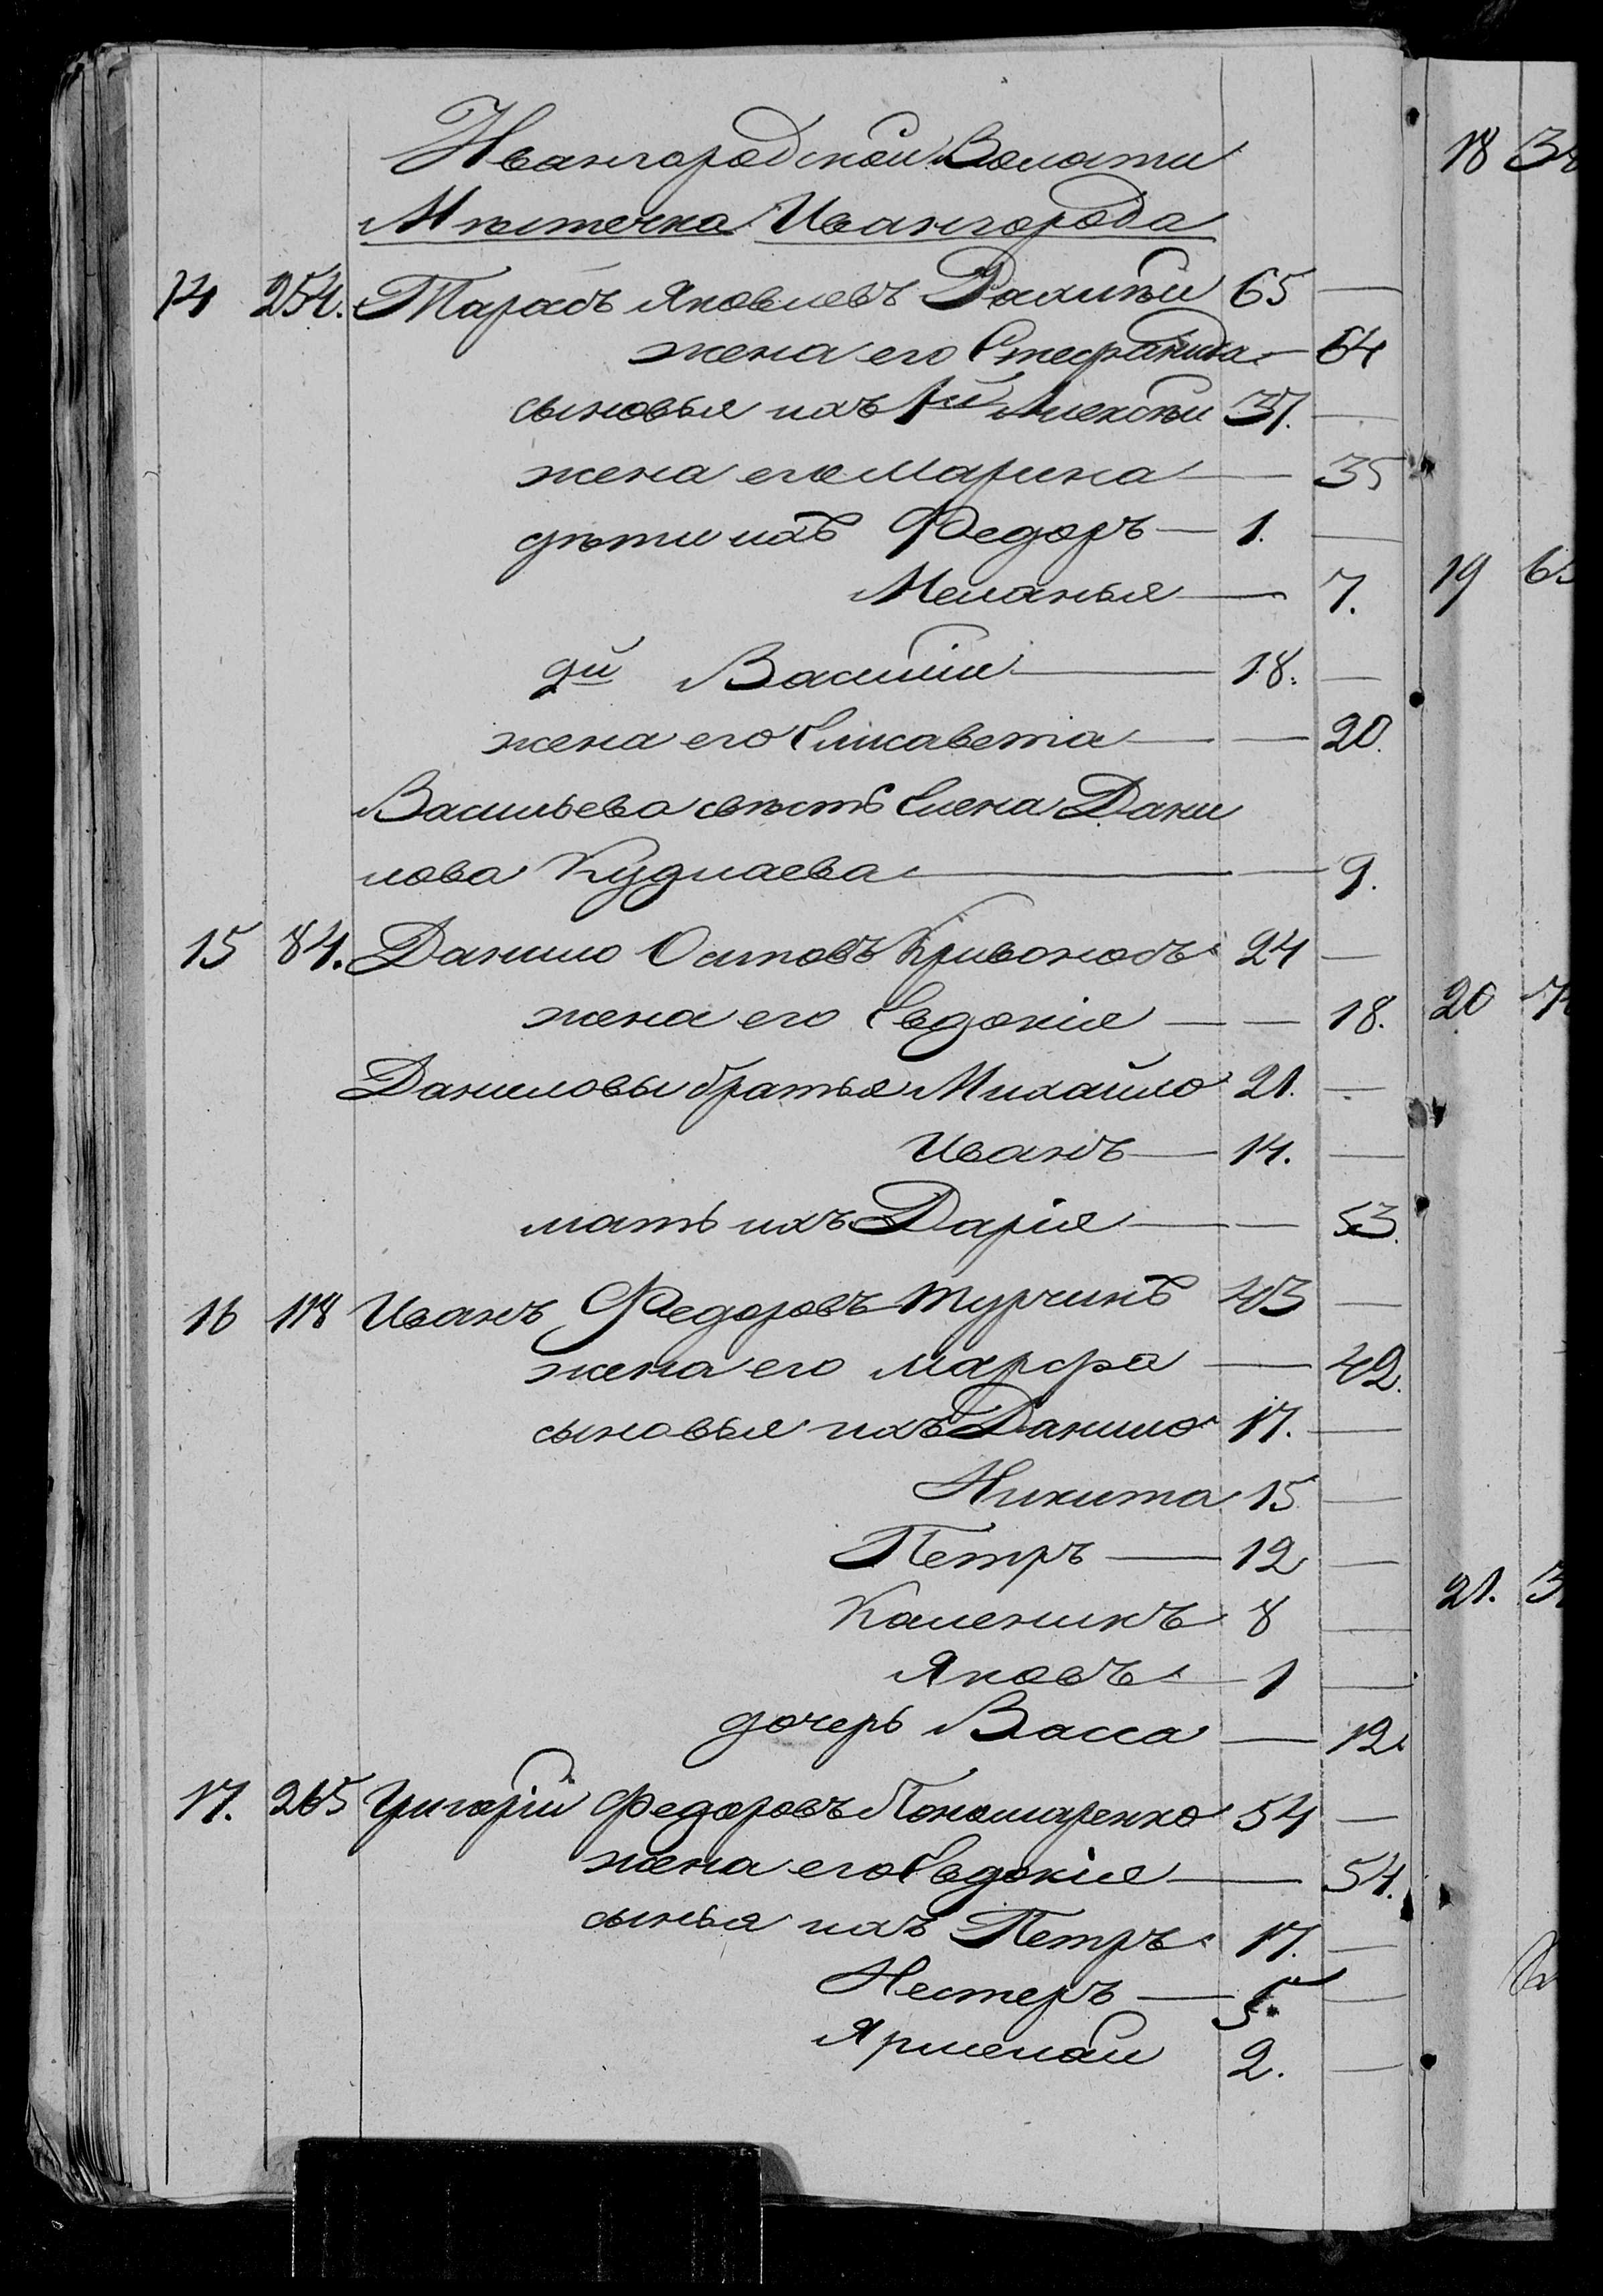 Ивангородской Волости
Мѣстечка Ивангорода
14 254. Тарасъ Яковлевъ 65 —
жена его Стефанида — 64
сыновья ихъ 1й Алексѣй 37. —
жена его Марина — 35
дѣти ихъ Федоръ — 1. —
Меланья — 7.
2й Василій — 18. —
жена его Елисавета — 20.
Васильева свѣсть Елена Дани
лова Кудлаева — 9.
15 84. Данило Осиповъ Кривоносъ 24 —
жена его Евдокія — 18.
Даниловы братья Михайло 21. —
Иванъ — 14. —
мать ихъ Дарія — 53.
16 118 Иванъ Федоровъ Турчинъ 43 —
жена его Марфа — 42.
сыновья ихъ Данило 17. —
Никита 15 —
Петръ — 12 —
Каленикъ 8 —
Яковъ 1 —
дочерь Васса — 12
17. 265 Григорій Федоровъ Пономаренко 54 —
жена его Евдокія — 54.
сынья ихъ Петръ 17. —
Нестеръ — 5. —
Ярмолай 2. —
18
19
20
21.